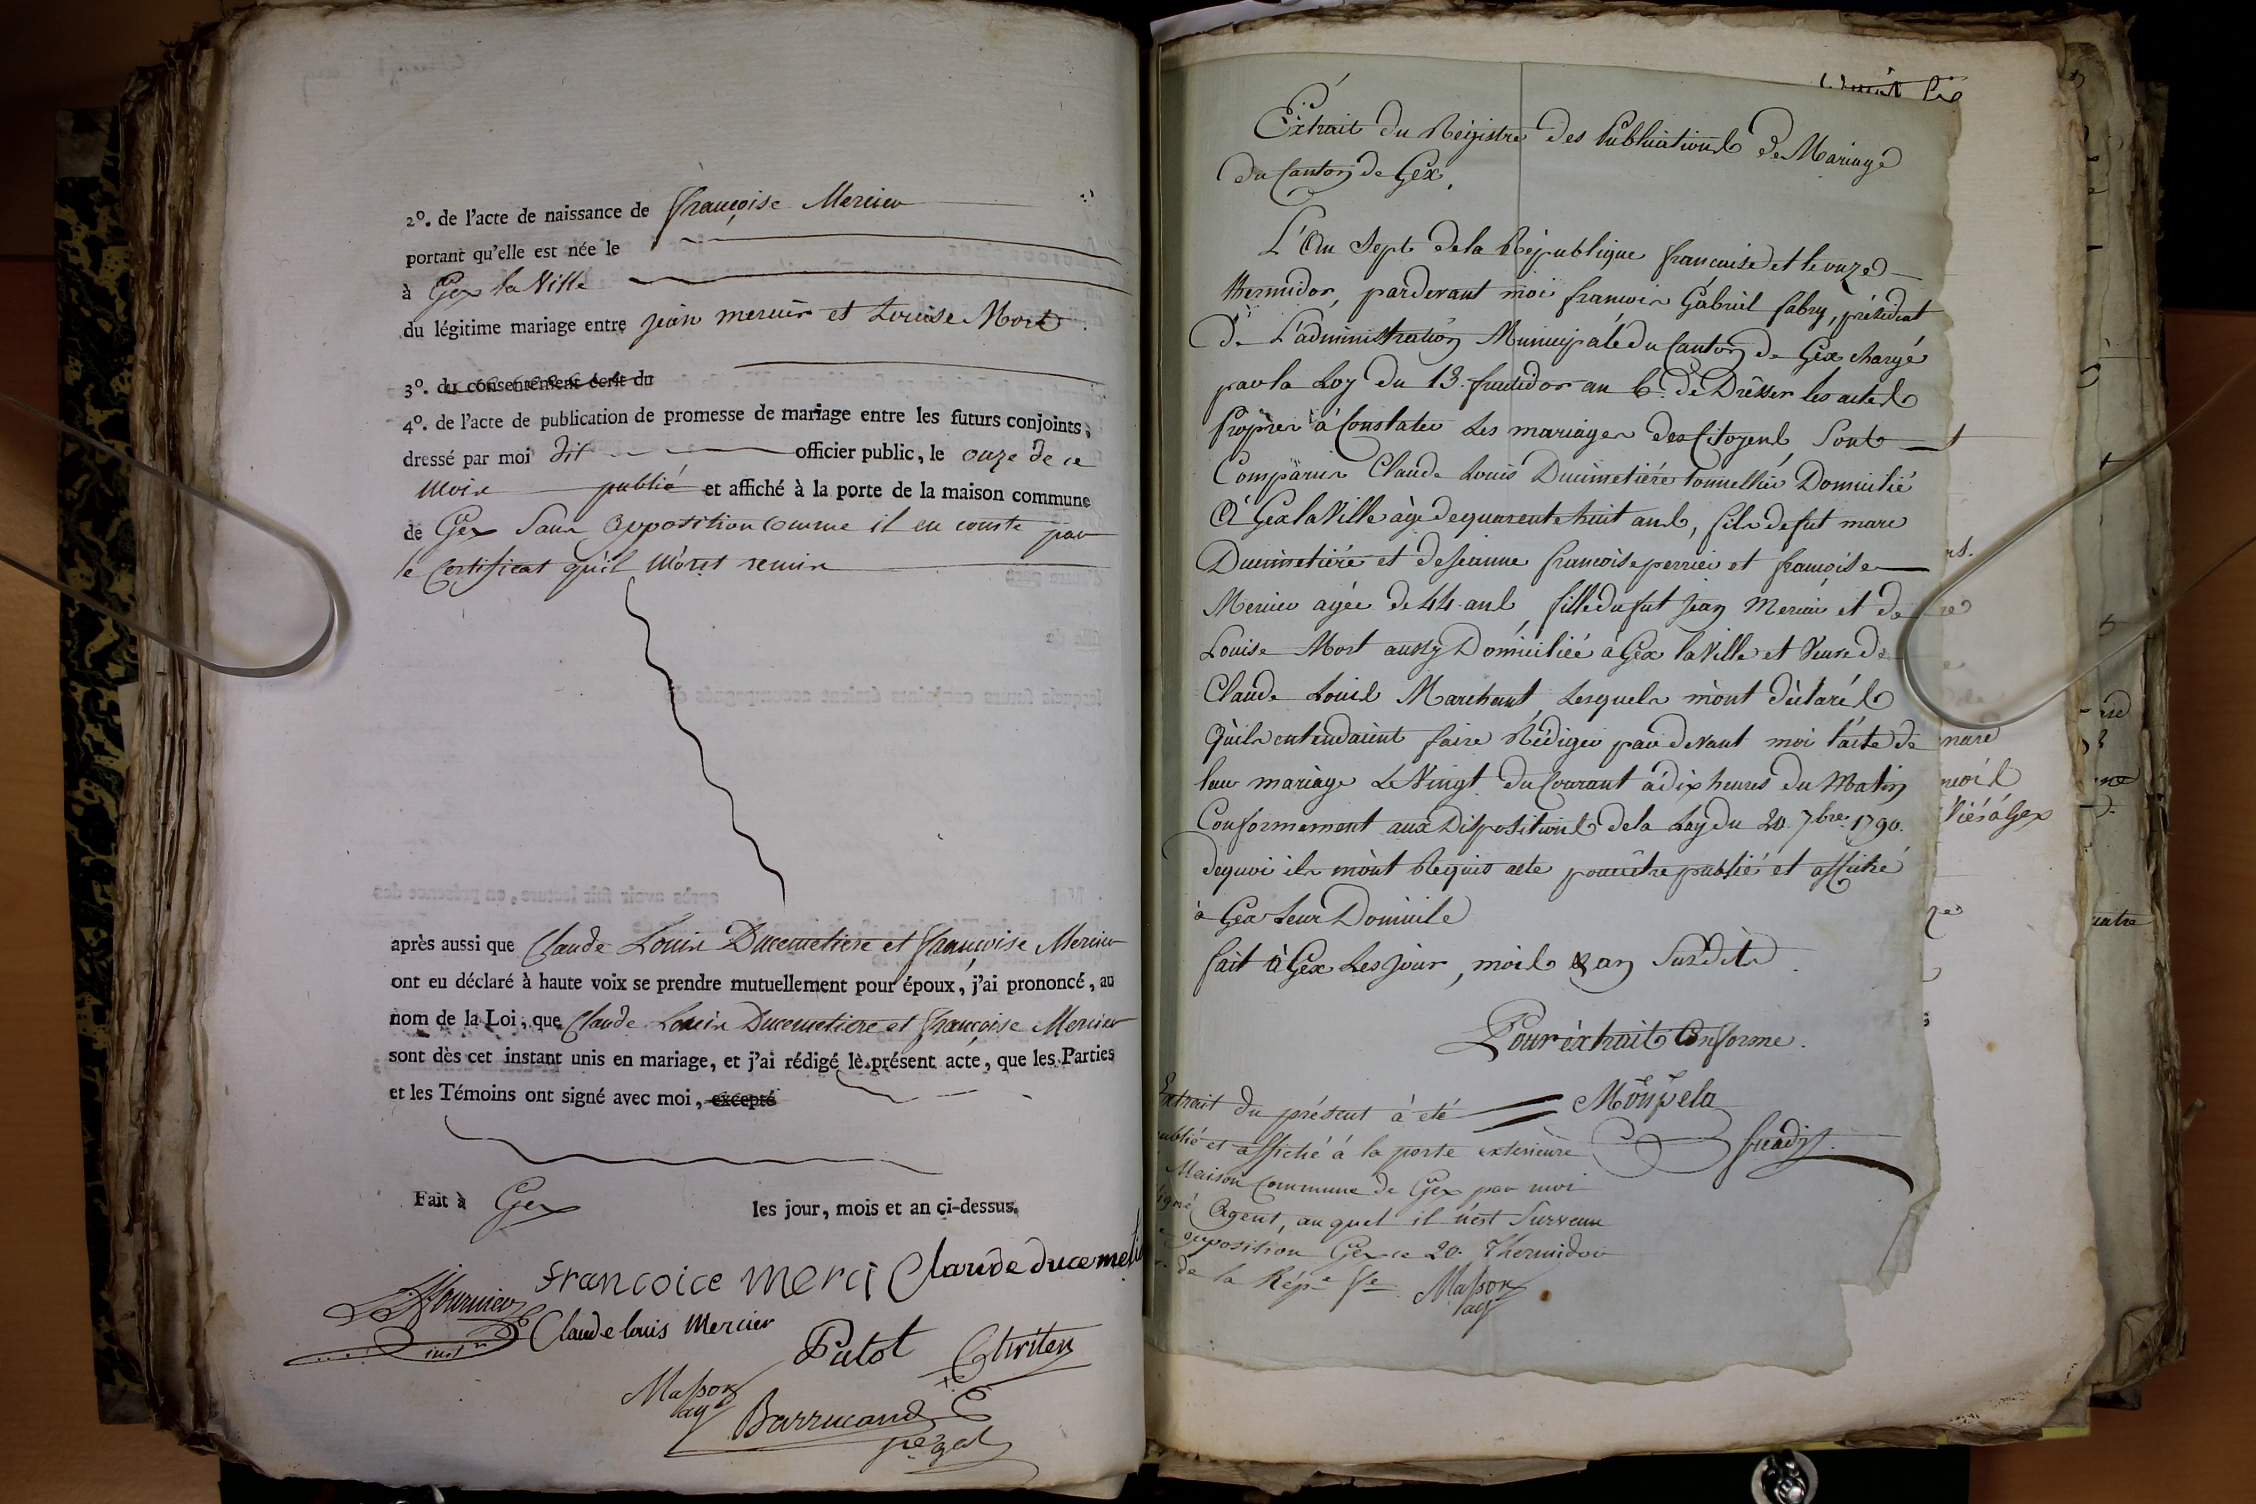 2º. de l'acte de naissance de françoise Mercier
portant qu'elle est née le
à Gex la Ville
du légitime mariage entre jean mercier et Louise Mort
3º. du consentement écrit du
4º. de l'acte de publication de promesse de mariage entre les futurs conjoints,
dressé par moi dit officier public, le onze de ce
mois publié et affiché à la porte de la maison commune
de Gex Sans opposition comme il en conste par
le Certificat qu'il m'a remis
après aussi que Claude Louis Ducemetiere et françoise Mercier
ont eu déclaré à haute voix se prendre mutuellement pour époux, j'ai prononcé, au
nom de la Loi, que Claude Louis Ducemetiere et françoise Mercier
sont dès cet instant unis en mariage, et j'ai rédigé le présent acte, que les Parties
et les Témoins ont signé avec moi, excepté
Fait à Gex les jour, mois et an ci-dessus.
francoice merci Claude ducemeti
Fournier
Claude louis Mercier
Patot
Masson
ag
Barrucand
Extrait du Régistre des Publications de Mariage
du Canton de Gex.
L'An Sept de la République francaise et le onze
thermidor, pardevant moi francois Gabriel fabry, président
De L'administration Municipale du Canton de Gex chargé
par la Loy du 13. fructidor an 6. de Dresser les actes
propres à Constater Les mariages des Citoyens, Sont
Comparus Claude Louis Ducimetiére tonnellier Domicilié
à Gex la Ville âgé de quarente huit ans, fils de fut marc
Ducimetiére et de Jeanne francoise perrier et francoise
Mercier agée de 44 ans, fille du fut Jean Mercier et de
Louise Mort aussy Domiciliée à Gex la Ville et Veuve de
Claude Louis Marchant, Lesquels m'ont déclarés
qu'ils entendaient faire Rédiger par devant moi l'acte de
leur mariage Le Vingt du Courant à dix heures du Matin
Conformement aux Dispositions de la Loy du 20. 7bre. 1790.
dequoi ils m'ont Requis acte pour être publié et affiché
à Gex Leur Domicile
fait à Gex Les jour, mois & an Susdits.
Pour extrait Conforme.
Extrait du présent à eté
publié et affiché à la porte exterieure
Maison Commune de Gex par moi
Agent, au quel il n'est Survenu
opposition Gex ce 20. Thermidor
de la Répe. fse. Masson
ag